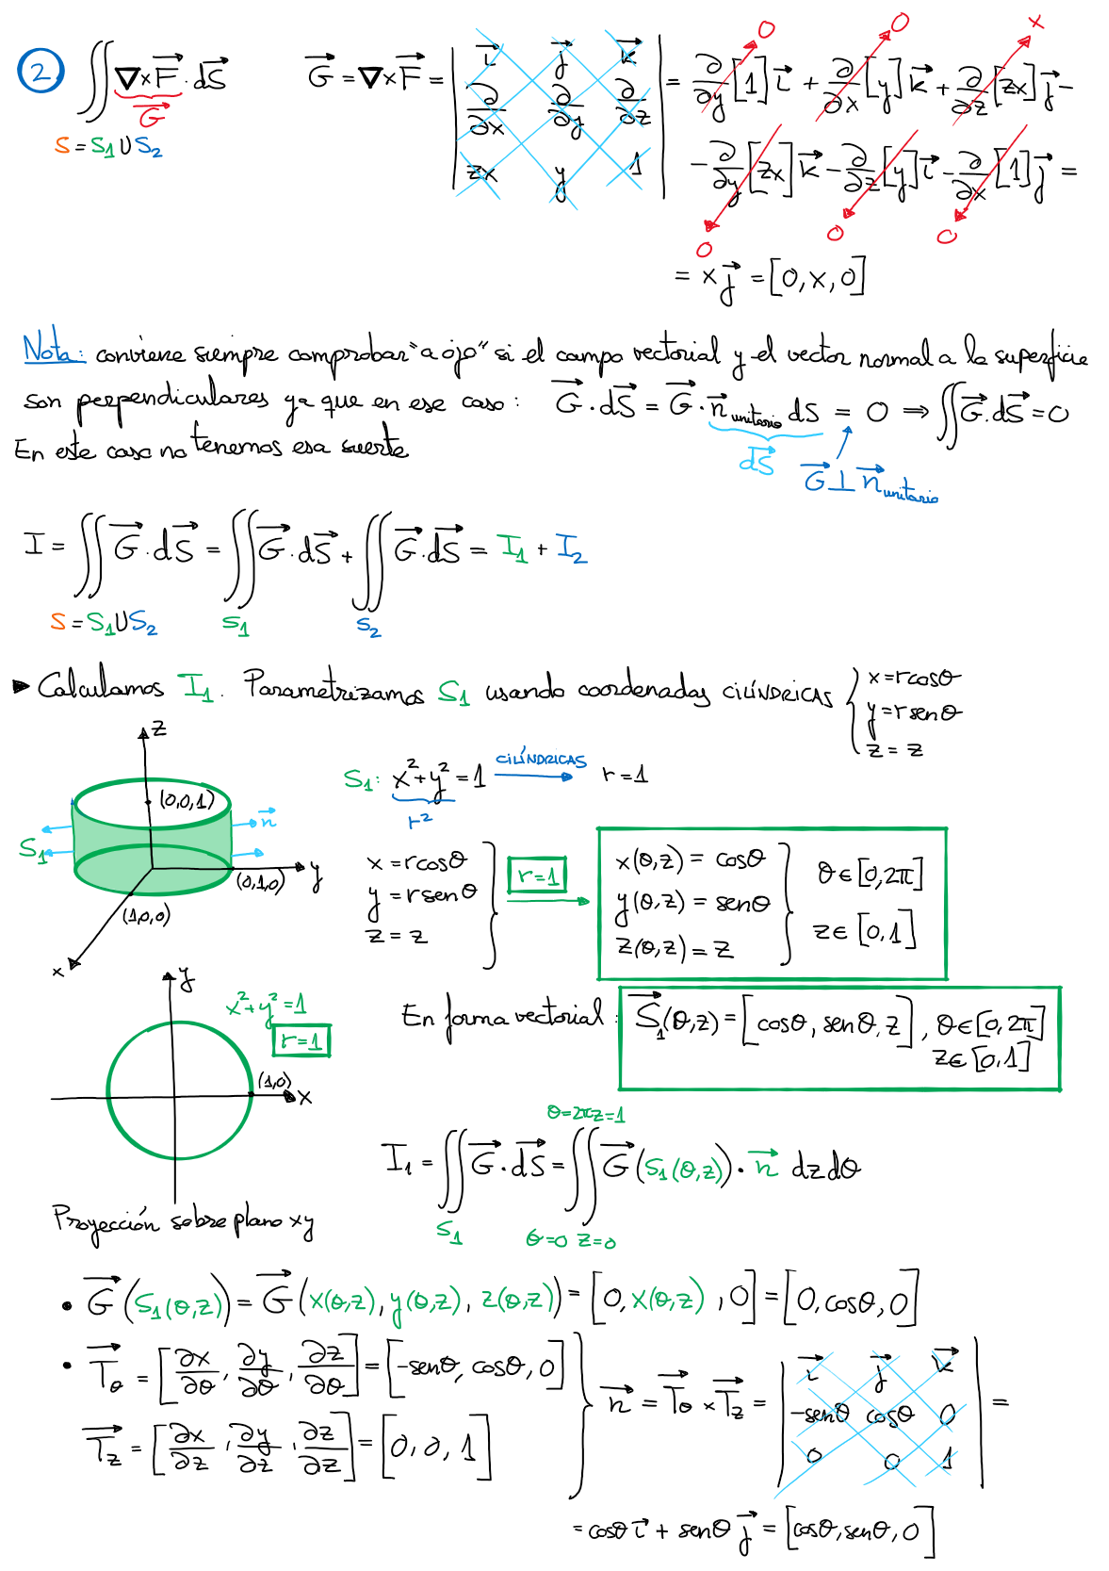 ② ∬ ∇×F⃗ · dS⃗    G⃗ = ∇×F⃗ = | i⃗ j⃗ k⃗ ; ∂/∂x ∂/∂y ∂/∂z ; zx y 1 | = ∂/∂y[1] i⃗ + ∂/∂x[y] k⃗ + ∂/∂z[zx] j⃗ −
G⃗
0 0 x
S = S₁ ∪ S₂
− ∂/∂y[zx] k⃗ − ∂/∂z[y] i⃗ − ∂/∂x[1] j⃗ =
0 0 0
= x j⃗ = [0, x, 0]
Nota: conviene siempre comprobar "a ojo" si el campo vectorial y el vector normal a la superficie
son perpendiculares ya que en ese caso: G⃗ · dS⃗ = G⃗ · n⃗ unitario dS = 0 ⇒ ∬ G⃗ · dS⃗ = 0
En este caso no tenemos esa suerte
dS⃗
G⃗ ⊥ n⃗ unitario
I = ∬ G⃗ · dS⃗ = ∬ G⃗ · dS⃗ + ∬ G⃗ · dS⃗ = I₁ + I₂
S = S₁ ∪ S₂ S₁ S₂
▶ Calculamos I₁. Parametrizamos S₁ usando coordenadas CILÍNDRICAS { x = r cosθ
y = r senθ
z = z
z
(0,0,1)
n⃗
S₁
y
(0,1,0)
(1,0,0)
x
S₁: x² + y² = 1 CILÍNDRICAS r = 1
r²
x = r cosθ
y = r senθ
z = z
r = 1
x(θ,z) = cosθ
y(θ,z) = senθ
z(θ,z) = z
θ ∈ [0, 2π]
z ∈ [0, 1]
y
x² + y² = 1
r = 1
(1,0)
x
Proyección sobre plano xy
En forma vectorial: S⃗₁(θ,z) = [cosθ, senθ, z], θ ∈ [0, 2π]
z ∈ [0, 1]
θ=2π z=1
I₁ = ∬ G⃗ · dS⃗ = ∬ G⃗(S₁(θ,z)) · n⃗ dz dθ
S₁ θ=0 z=0
• G⃗(S₁(θ,z)) = G⃗(x(θ,z), y(θ,z), z(θ,z)) = [0, x(θ,z), 0] = [0, cosθ, 0]
• T⃗θ = [∂x/∂θ, ∂y/∂θ, ∂z/∂θ] = [-senθ, cosθ, 0]
T⃗z = [∂x/∂z, ∂y/∂z, ∂z/∂z] = [0, 0, 1]
n⃗ = T⃗θ × T⃗z = | i⃗ j⃗ k⃗ ; -senθ cosθ 0 ; 0 0 1 | =
= cosθ i⃗ + senθ j⃗ = [cosθ, senθ, 0]